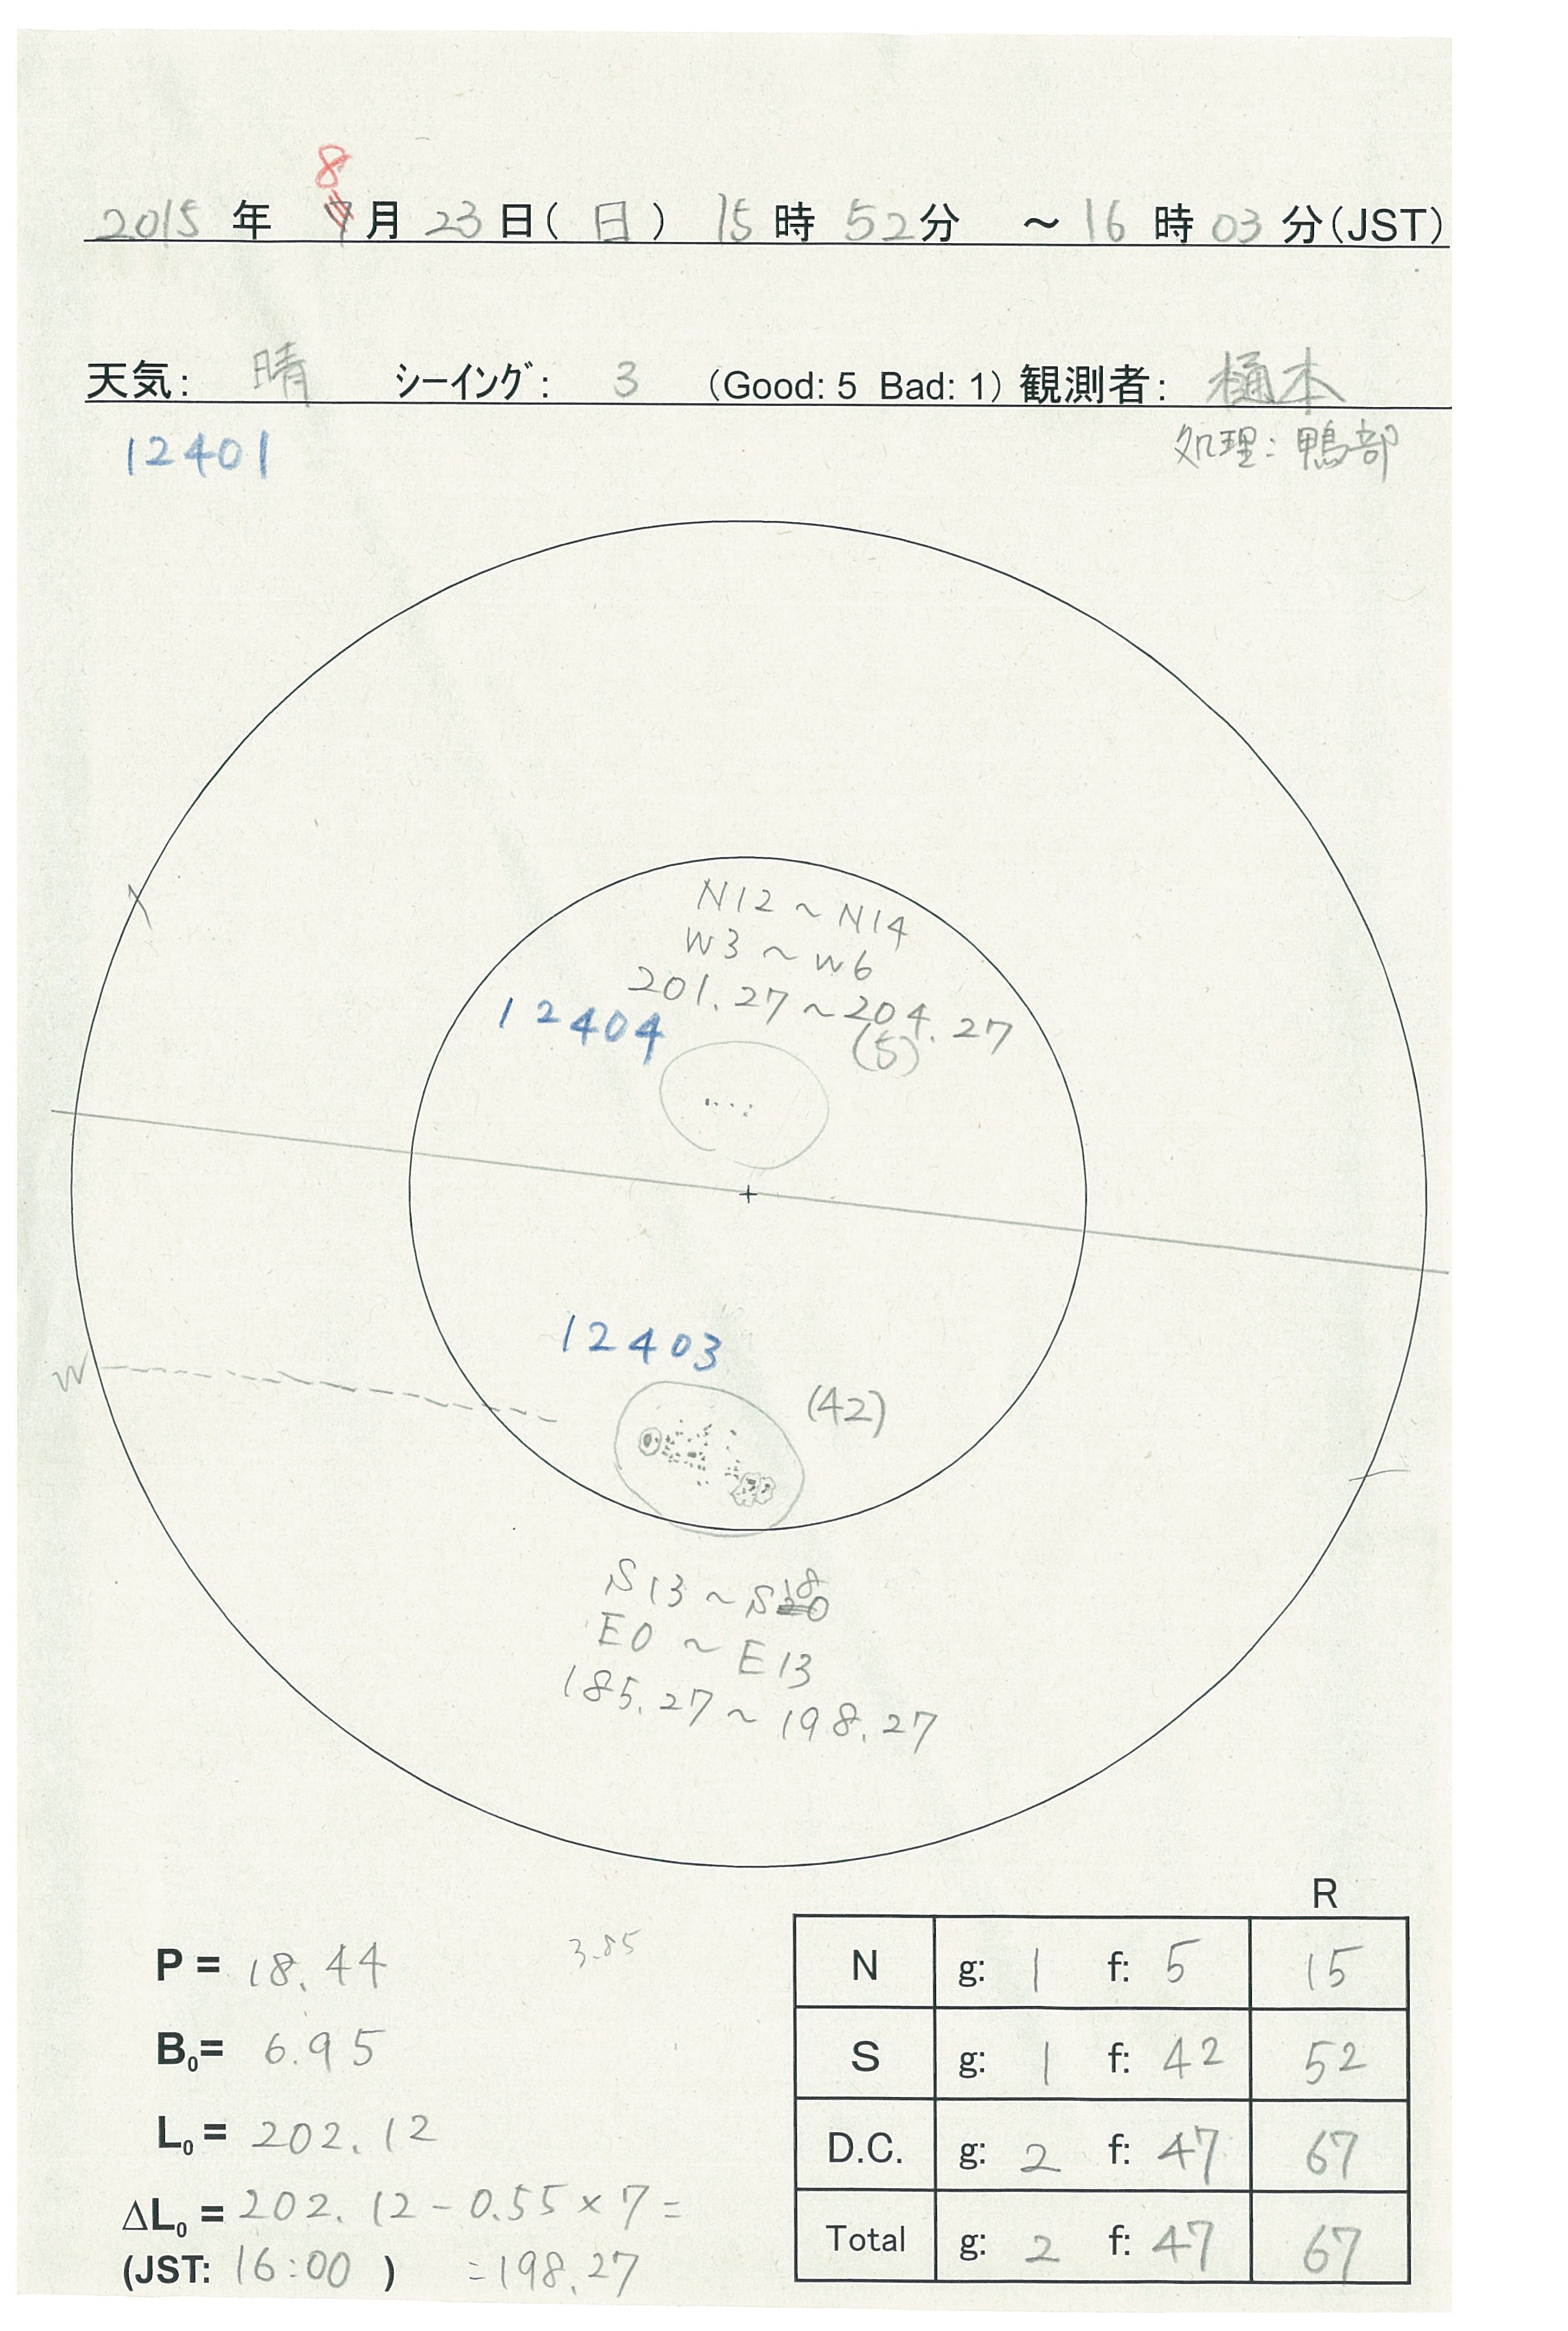 8
2015 年 7月 23日( 日 ) 15時 52分 ～16 時 03分(JST)
天気: 晴 シーイング: 3 (Good: 5 Bad: 1) 観測者: 樋本
12401
処理: 鴨部
N12～N14
W3～W6
201.27～204.27
12404
(5)
12403
W
(42)
S13～S18
E0～E13
185.27～198.27
R
P = 18.44
3.85
N g: 1 f: 5 15
B0= 6.95
S g: 1 f: 42 52
L0 = 202.12
D.C. g: 2 f: 47 67
ΔL0 = 202.12-0.55×7=
Total g: 2 f: 47 67
(JST: 16:00 ) =198.27